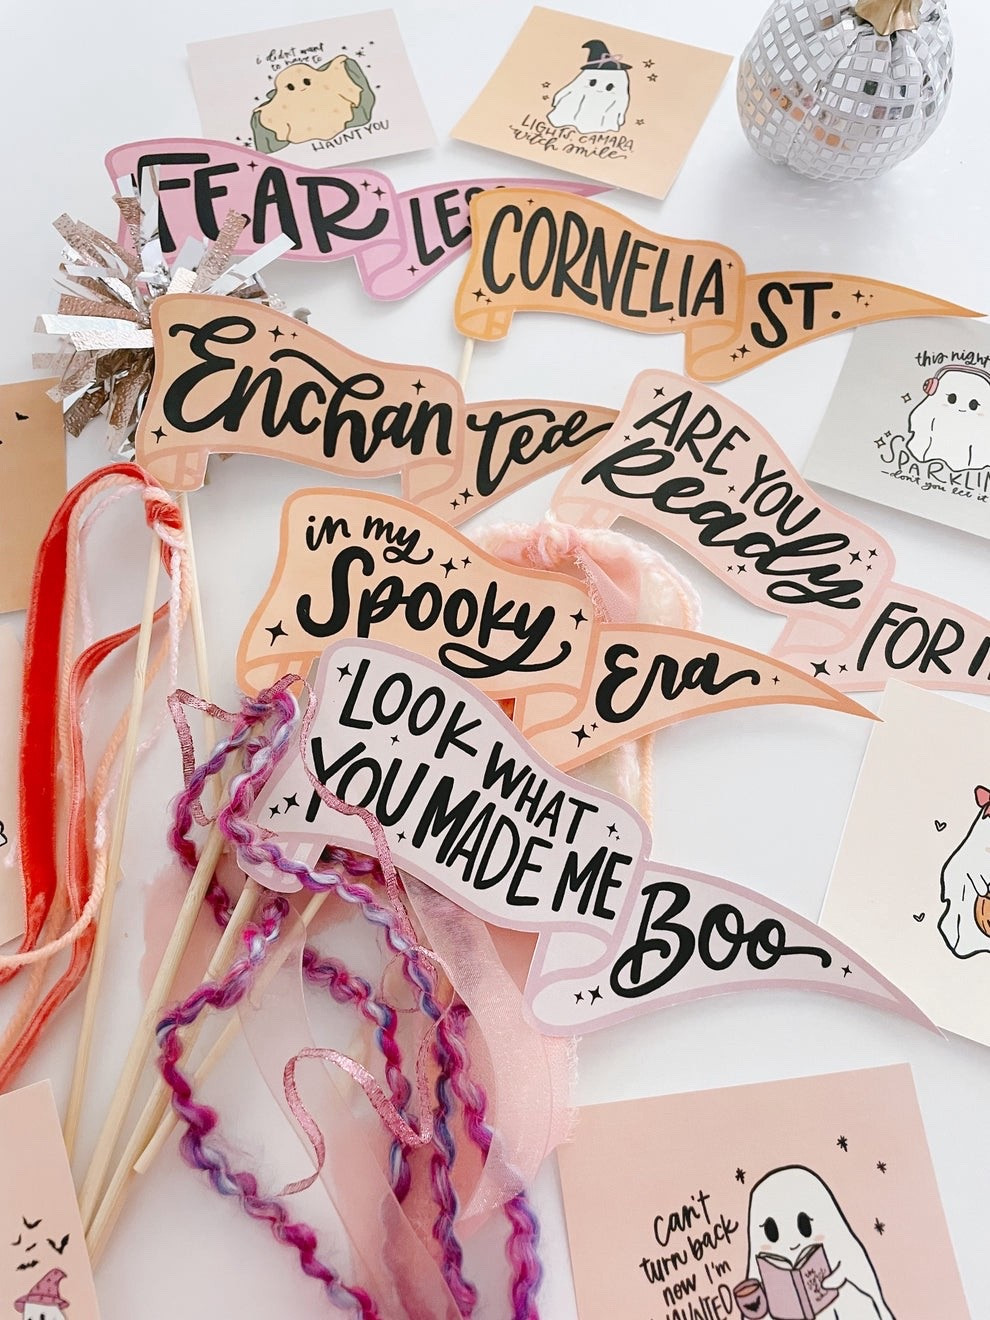 i didn't want
to have to
HAUNT YOU
LIGHTS, CAMARA,
witch smile
FEAR LESS
CORNELIA ST.
Enchan ted
this night
SPARKLIN
don't you let it
ARE YOU
Ready
FOR
in my
Spooky Era
LOOK WHAT
YOU MADE ME
Boo
can't
turn back
now I'm
HAUNTED